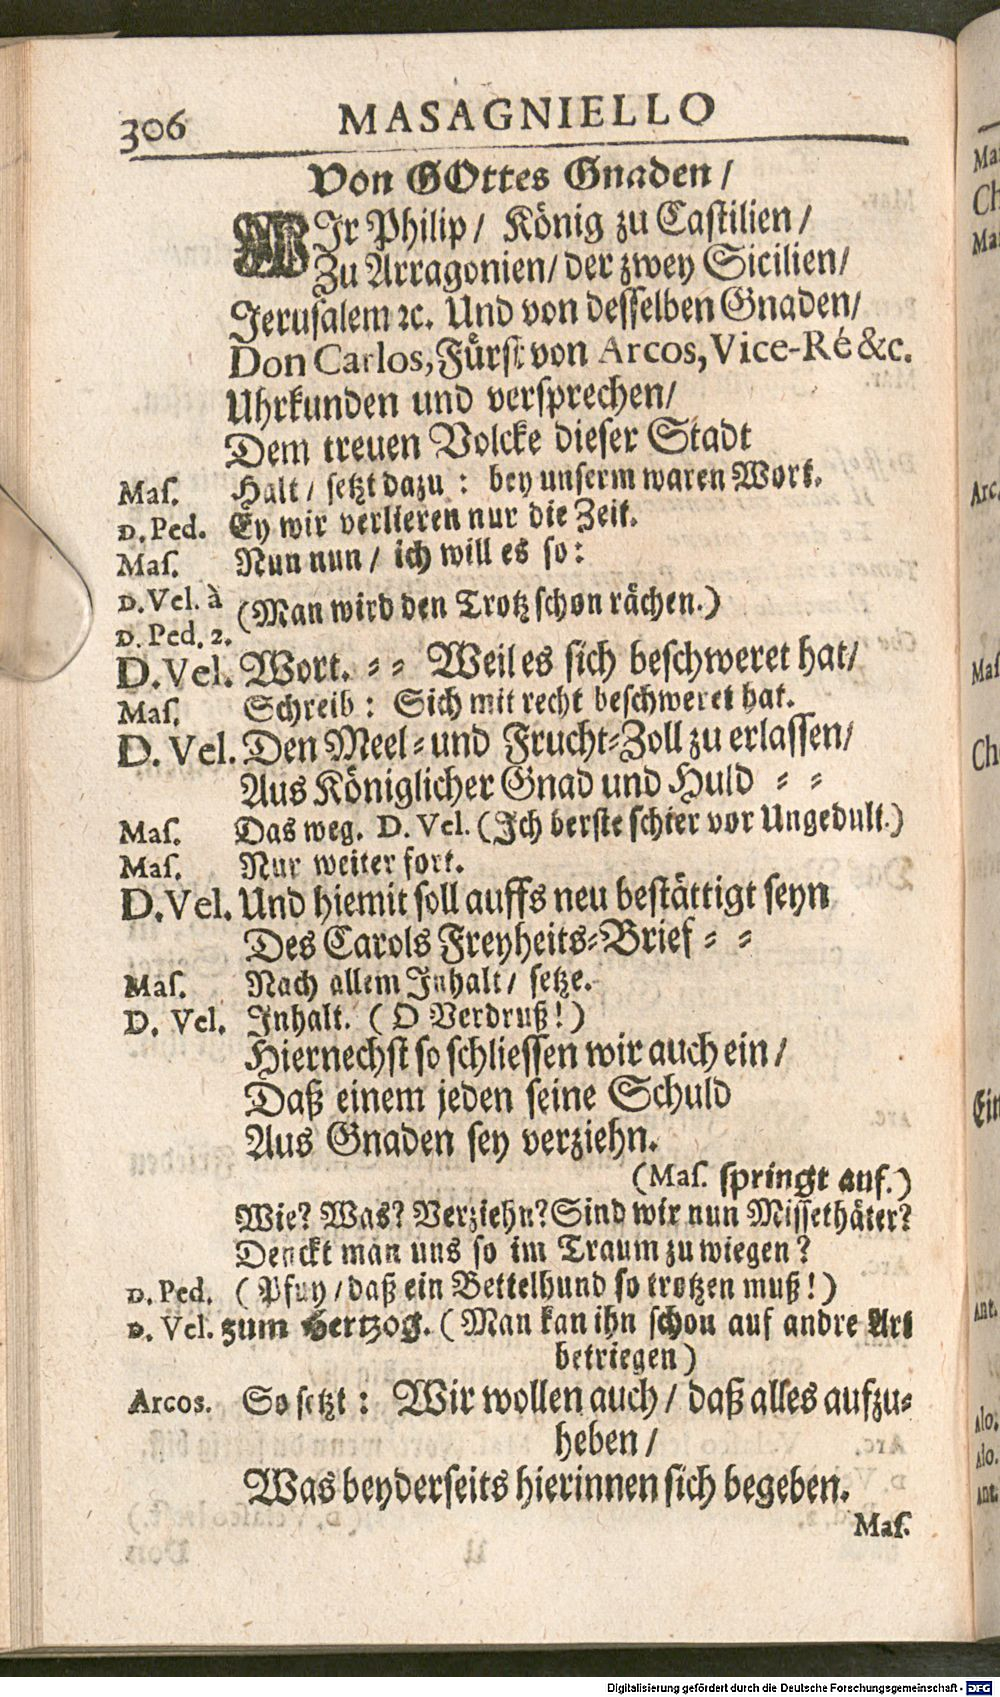 306 MASAGNIELLO
Von GOttes Gnaden /
WJr Philip / König zu Castilien /
Zu Arragonien / der zwey Sicilien /
Jerusalem ꝛc. Und von desselben Gnaden /
Don Carlos, Fürst von Arcos, Vice-Ré &c.
Uhrkunden und versprechen /
Dem treuen Volcke dieser Stadt
Mas. Halt / setzt dazu : bey unserm waren Wort.
D. Ped. Ey wir verlieren nur die Zeit.
Mas. Nun nun / ich will es so :
D. Vel. à
D. Ped. 2. (Man wird den Trotz schon rächen.)
D. Vel. Wort. ⸗ ⸗ Weil es sich beschweret hat /
Mas. Schreib : Sich mit recht beschweret hat.
D. Vel. Den Meel⸗und Frucht⸗Zoll zu erlassen /
Aus Königlicher Gnad und Huld ⸗ ⸗
Mas. Das weg. D. Vel. (Jch berste schier vor Ungedult.)
Mas. Nur weiter fort.
D. Vel. Und hiemit soll auffs neu bestättigt seyn
Des Carols Freyheits⸗Brief ⸗ ⸗
Mas. Nach allem Jnhalt / setze.
D. Vel. Jnhalt. (O Verdruß!)
Hiernechst so schliessen wir auch ein /
Daß einem jeden seine Schuld
Aus Gnaden sey verziehn.
(Mas. springt auf.)
Wie? Was? Verziehn? Sind wir nun Missethäter?
Denckt man uns so im Traum zu wiegen?
D. Ped. (Pfuy / daß ein Bettelhund so trotzen muß!)
D. Vel. zum Hertzog. (Man kan ihn schon auf andre Art
betriegen)
Arcos. So setzt : Wir wollen auch / daß alles aufzu⸗
heben /
Was beyderseits hierinnen sich begeben.
Mas.
Mas
Arc.
Mas
Ein
Ant.
Alo.
Alo.
Ant.
Digitalisierung gefördert durch die Deutsche Forschungsgemeinschaft - DFG